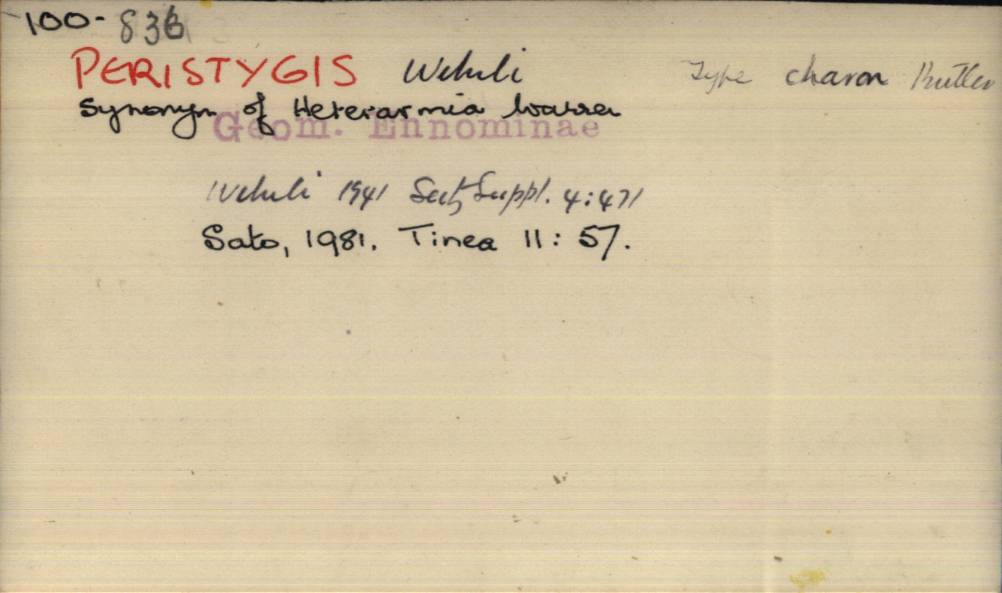 100-836
PERISTYGIS Wehrli Type charon Butler
Synonym of Heterarmia Warren
Geom. Ennominae
Wehrli 1941 Seitz Suppl. 4:471
Sato, 1981. Tinea 11: 57.